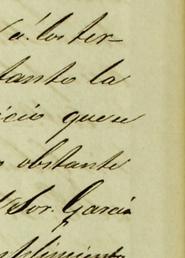 á los ter-
tanto la
icio que se
obstante
Sor. Garcia
mplimiento